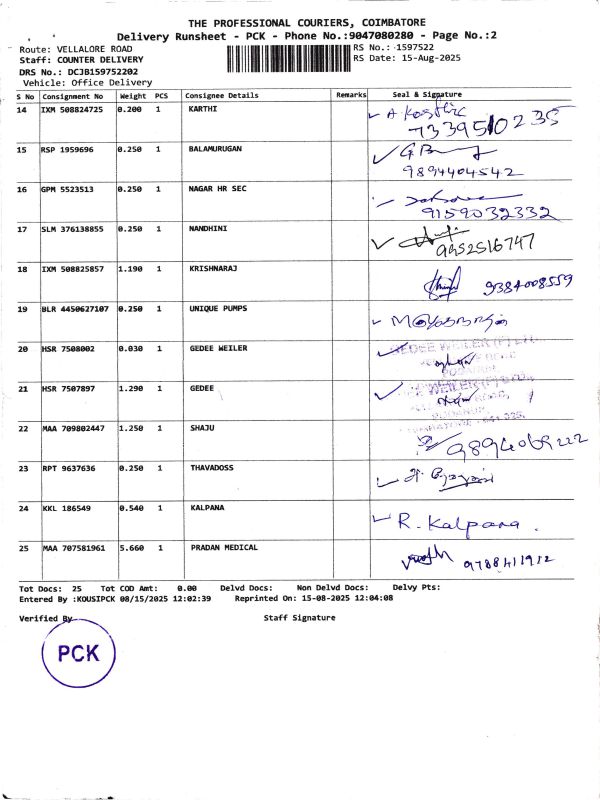 THE PROFESSIONAL COURIERS, COIMBATORE
Delivery Runsheet - PCK - Phone No.:9047080280 - Page No.:2
Route: VELLALORE ROAD
RS No.: 1597522
Staff: COUNTER DELIVERY
RS Date: 15-Aug-2025
DRS No.: DCJB159752202
Vehicle: Office Delivery
S No Consignment No Weight PCS Consignee Details Remarks Seal & Signature
14 IXM 508824725 0.200 1 KARTHI
15 RSP 1959696 0.250 1 BALAMURUGAN
9894404542
16 GPM 5523513 0.250 1 NAGAR HR SEC
9159032332
17 SLM 376138855 0.250 1 NANDHINI
18 IXM 508825857 1.190 1 KRISHNARAJ
9384008559
19 BLR 4450627107 0.250 1 UNIQUE PUMPS
20 HSR 7508002 0.030 1 GEDEE WEILER
GEDEE WEILER (P) LTD.
21 HSR 7507897 1.290 1 GEDEE
22 MAA 709802447 1.250 1 SHAJU
9894069222
23 RPT 9637636 0.250 1 THAVADOSS
24 KKL 186549 0.540 1 KALPANA
R. Kalpana.
25 MAA 707581961 5.660 1 PRADAN MEDICAL
9788411912
Tot Docs: 25 Tot COD Amt: 0.00 Delvd Docs: Non Delvd Docs: Delvy Pts:
Entered By :KOUSIPCK 08/15/2025 12:02:39 Reprinted On: 15-08-2025 12:04:08
Verified By
Staff Signature
PCK